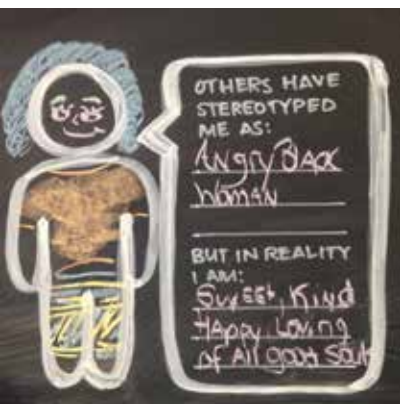 OTHERS HAVE
STEREOTYPED
ME AS:
Angry Black
Woman
BUT IN REALITY
I AM:
Sweet, Kind
Happy, Loving
of All good Soul